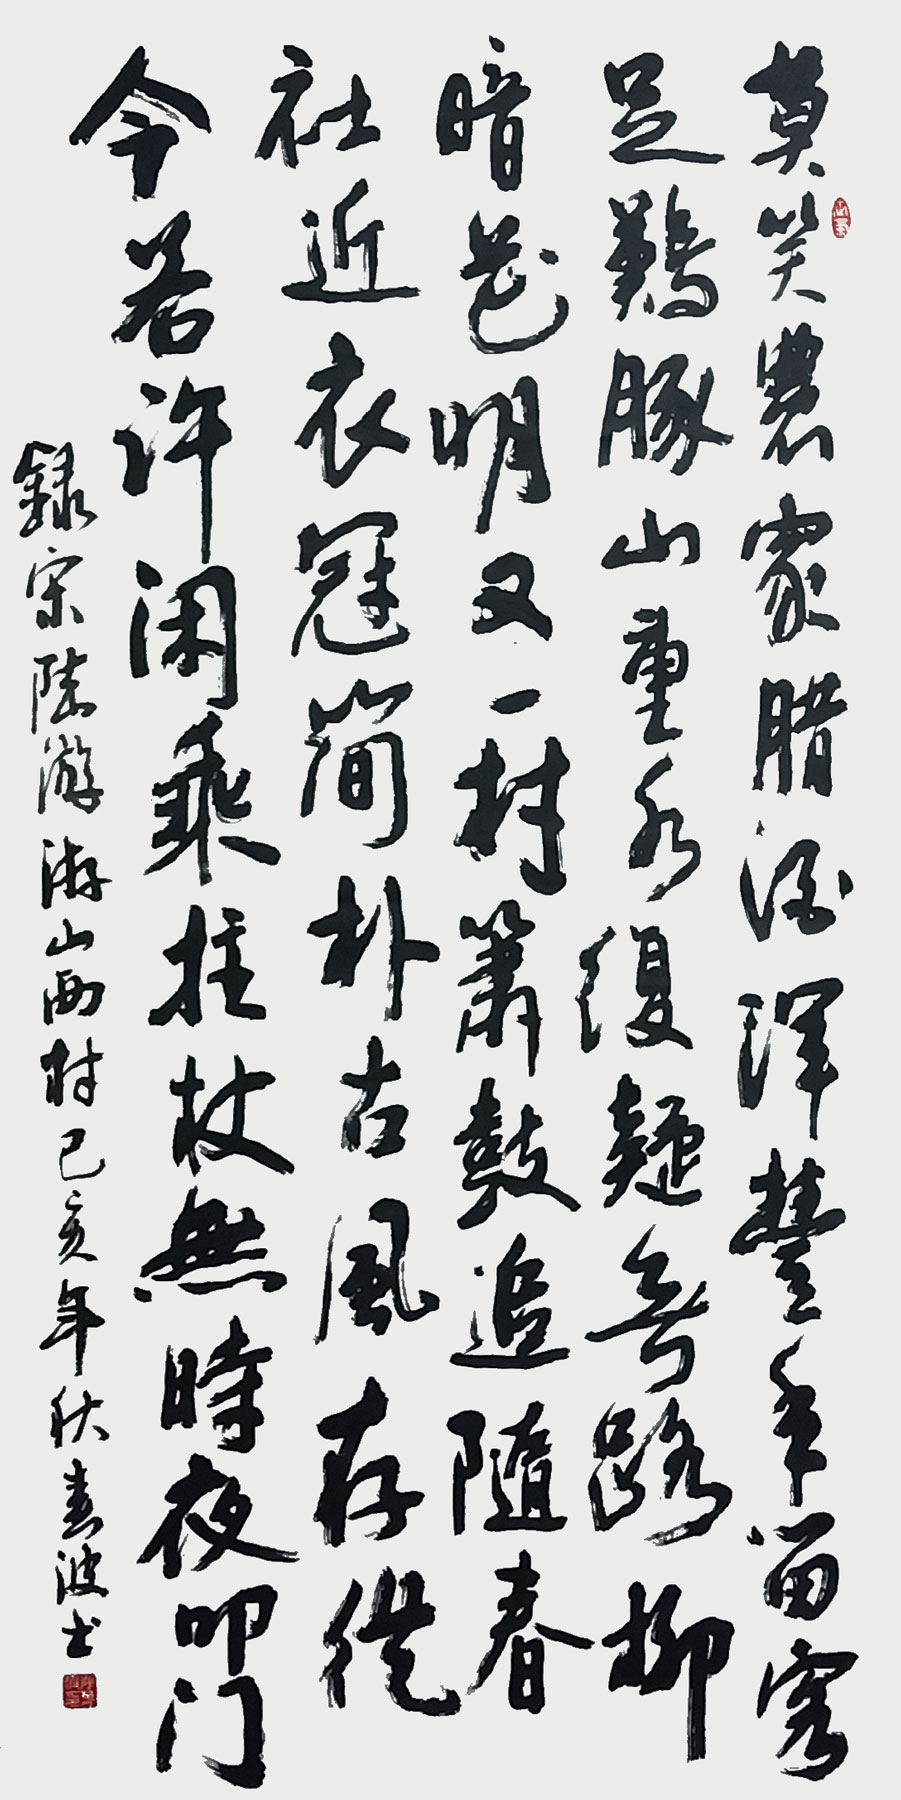 莫笑農家腊酒渾豐年留客
足鷄豚山重水複疑無路柳
暗花明又一村簫鼓追隨春
社近衣冠簡朴古風存從
今若許闲乘拄杖無時夜叩门
録宋陸游游山西村己亥年秋春波书